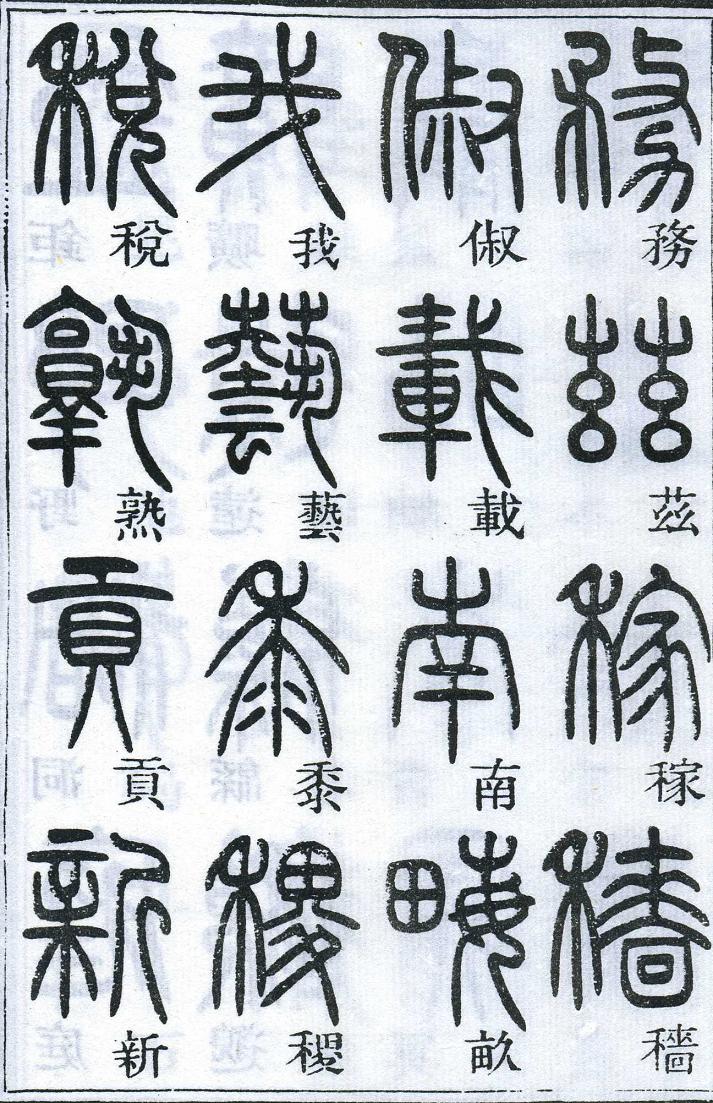 務茲稼穡
俶載南畝
我藝黍稷
稅熟貢新